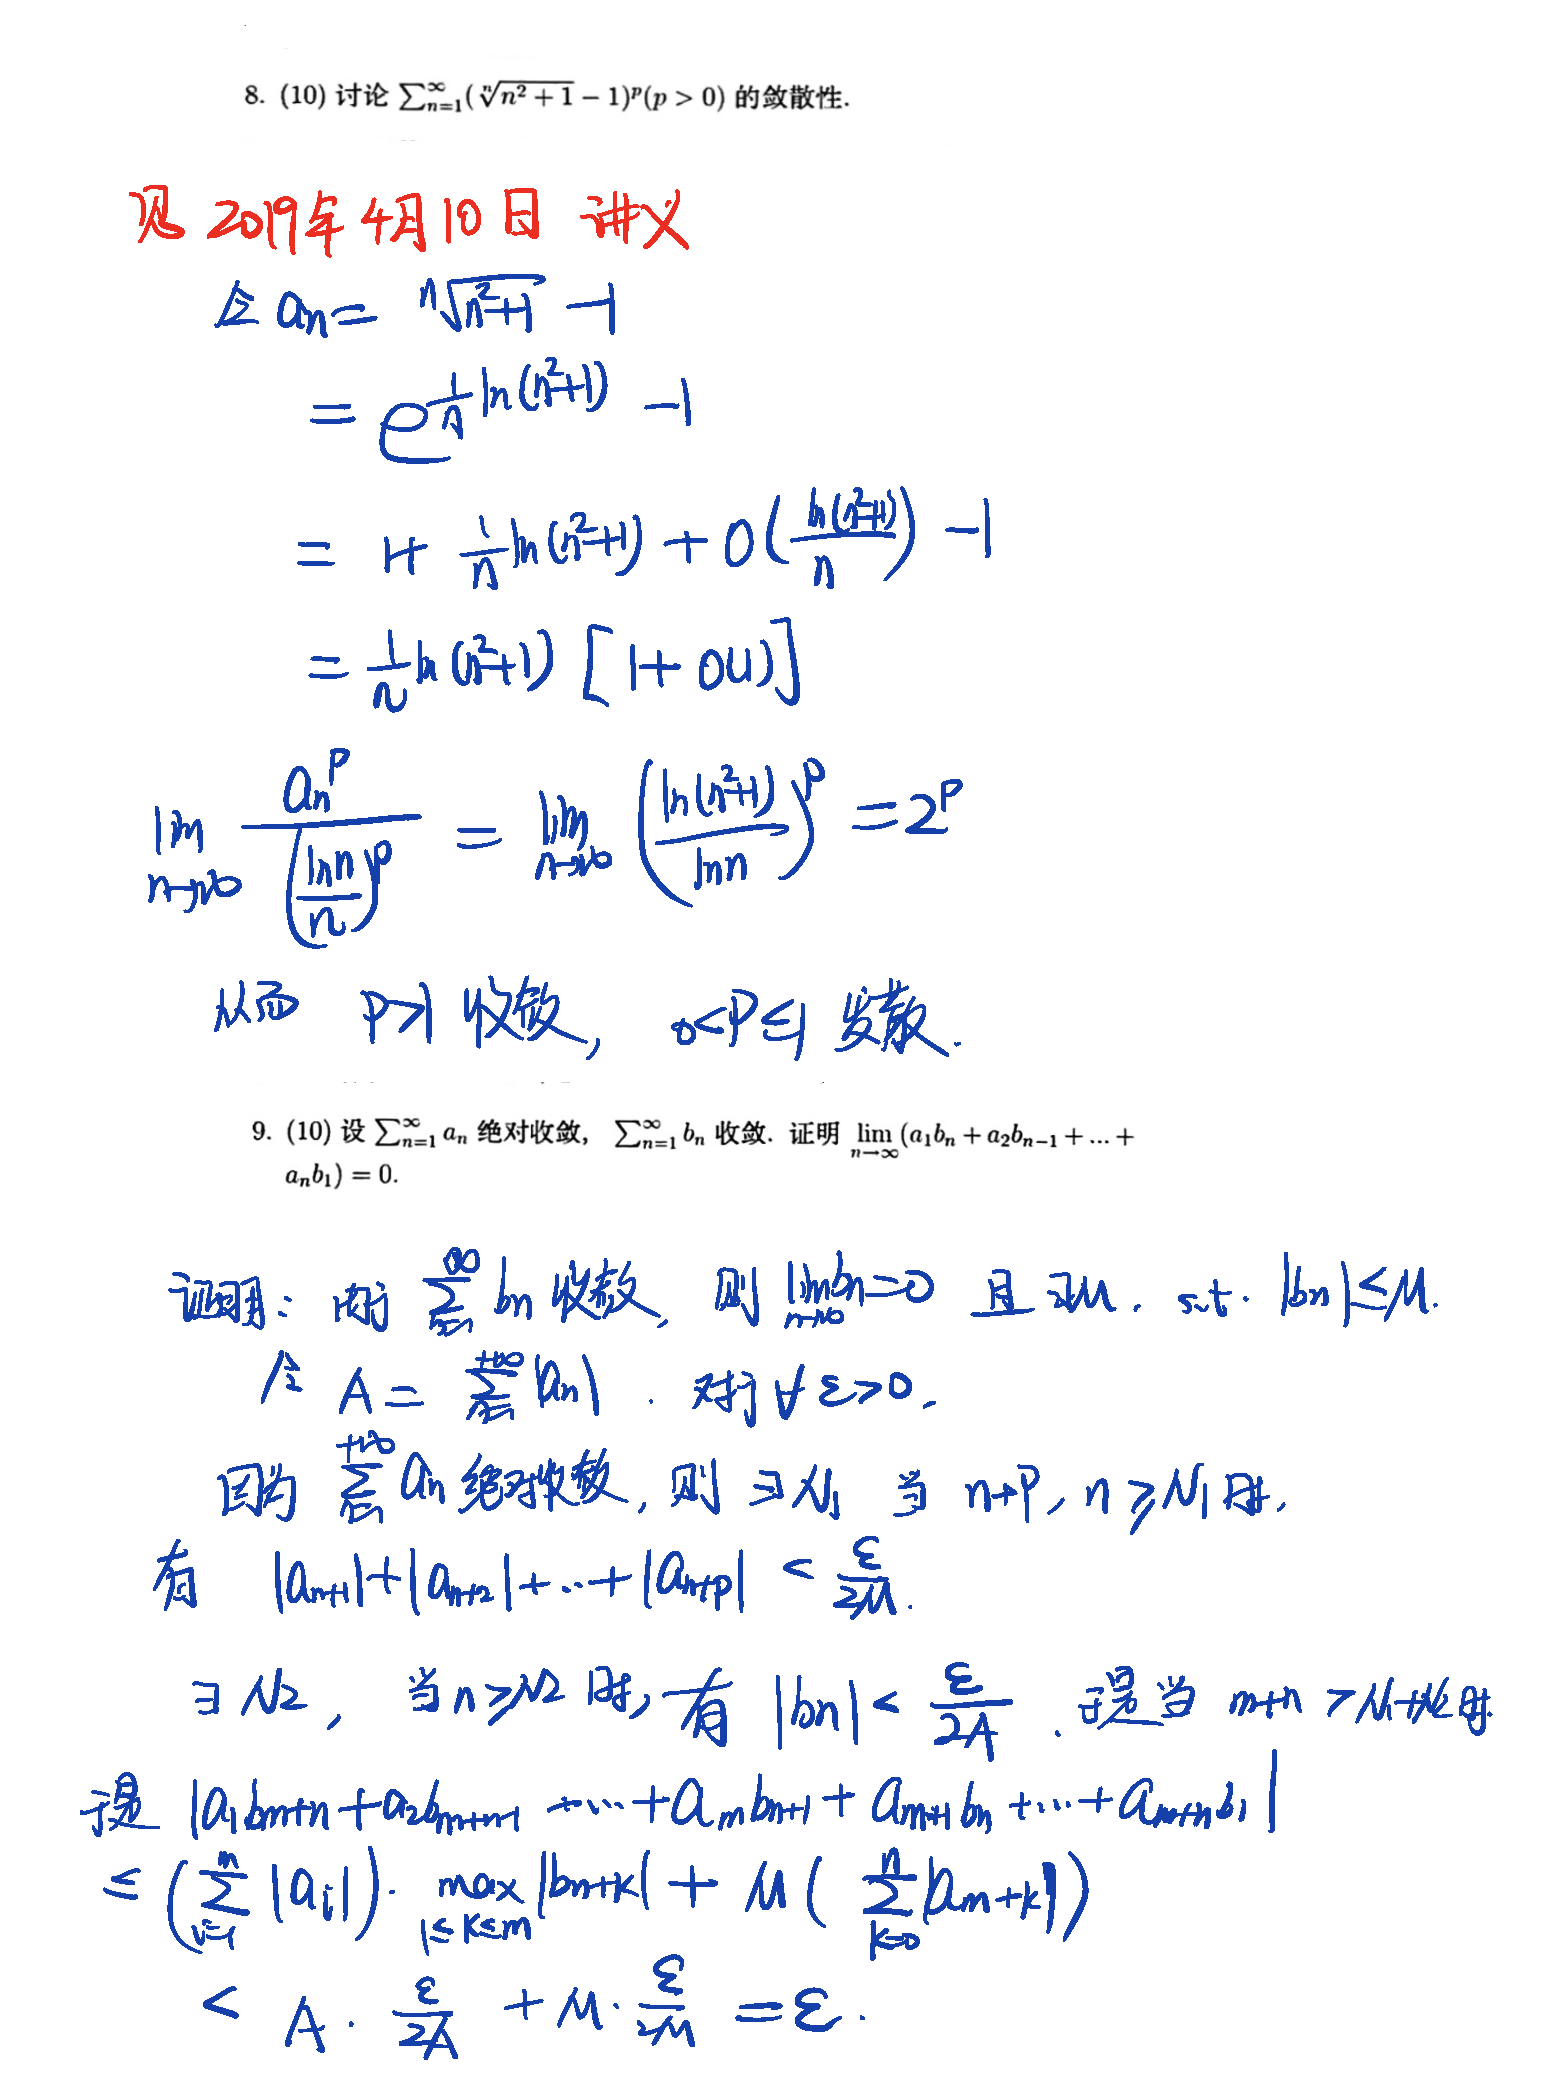 8. (10) 讨论 ∑_{n=1}^{∞}(\sqrt[n]{n²+1} − 1)^p (p > 0) 的敛散性.
见 2019年4月10日 讲义
令 a_n = \sqrt[n]{n²+1} − 1
= e^{\frac{1}{n} ln(n²+1)} − 1
= 1 + \frac{1}{n} ln(n²+1) + o(\frac{ln(n²+1)}{n}) − 1
= \frac{1}{n} ln(n²+1) [1 + o(1)]
lim_{n→∞} \frac{a_n^p}{(\frac{ln n}{n})^p} = lim_{n→∞} (\frac{ln(n²+1)}{ln n})^p = 2^p
从而 p>1 收敛, 0<p≤1 发散.
9. (10) 设 ∑_{n=1}^{∞} a_n 绝对收敛, ∑_{n=1}^{∞} b_n 收敛. 证明 lim_{n→∞} (a_1b_n + a_2b_{n−1} + ... +
a_nb_1) = 0.
证明: 由于 ∑_{n=1}^{∞} b_n 收敛, 则 lim_{n→∞} b_n = 0 且 ∃M, s.t. |b_n| ≤ M.
令 A = ∑_{n=1}^{+∞} |a_n|. 对于 ∀ε>0,
因为 ∑_{n=1}^{+∞} a_n 绝对收敛, 则 ∃N_1 当 n+p, n ≥ N_1 时,
有 |a_{n+1}| + |a_{n+2}| + ... + |a_{n+p}| < \frac{ε}{2M}.
∃ N_2, 当 n ≥ N_2 时, 有 |b_n| < \frac{ε}{2A}. 于是当 m+n > N_1+N_2 时
于是 |a_1b_{m+n} + a_2b_{m+n−1} + ... + a_mb_{n+1} + a_{m+1}b_n + ... + a_{m+n}b_1|
≤ (∑_{i=1}^{m} |a_i|) · max_{1≤k≤m} |b_{n+k}| + M (∑_{k=0}^{n} |a_{m+k}|)
< A · \frac{ε}{2A} + M · \frac{ε}{2M} = ε.